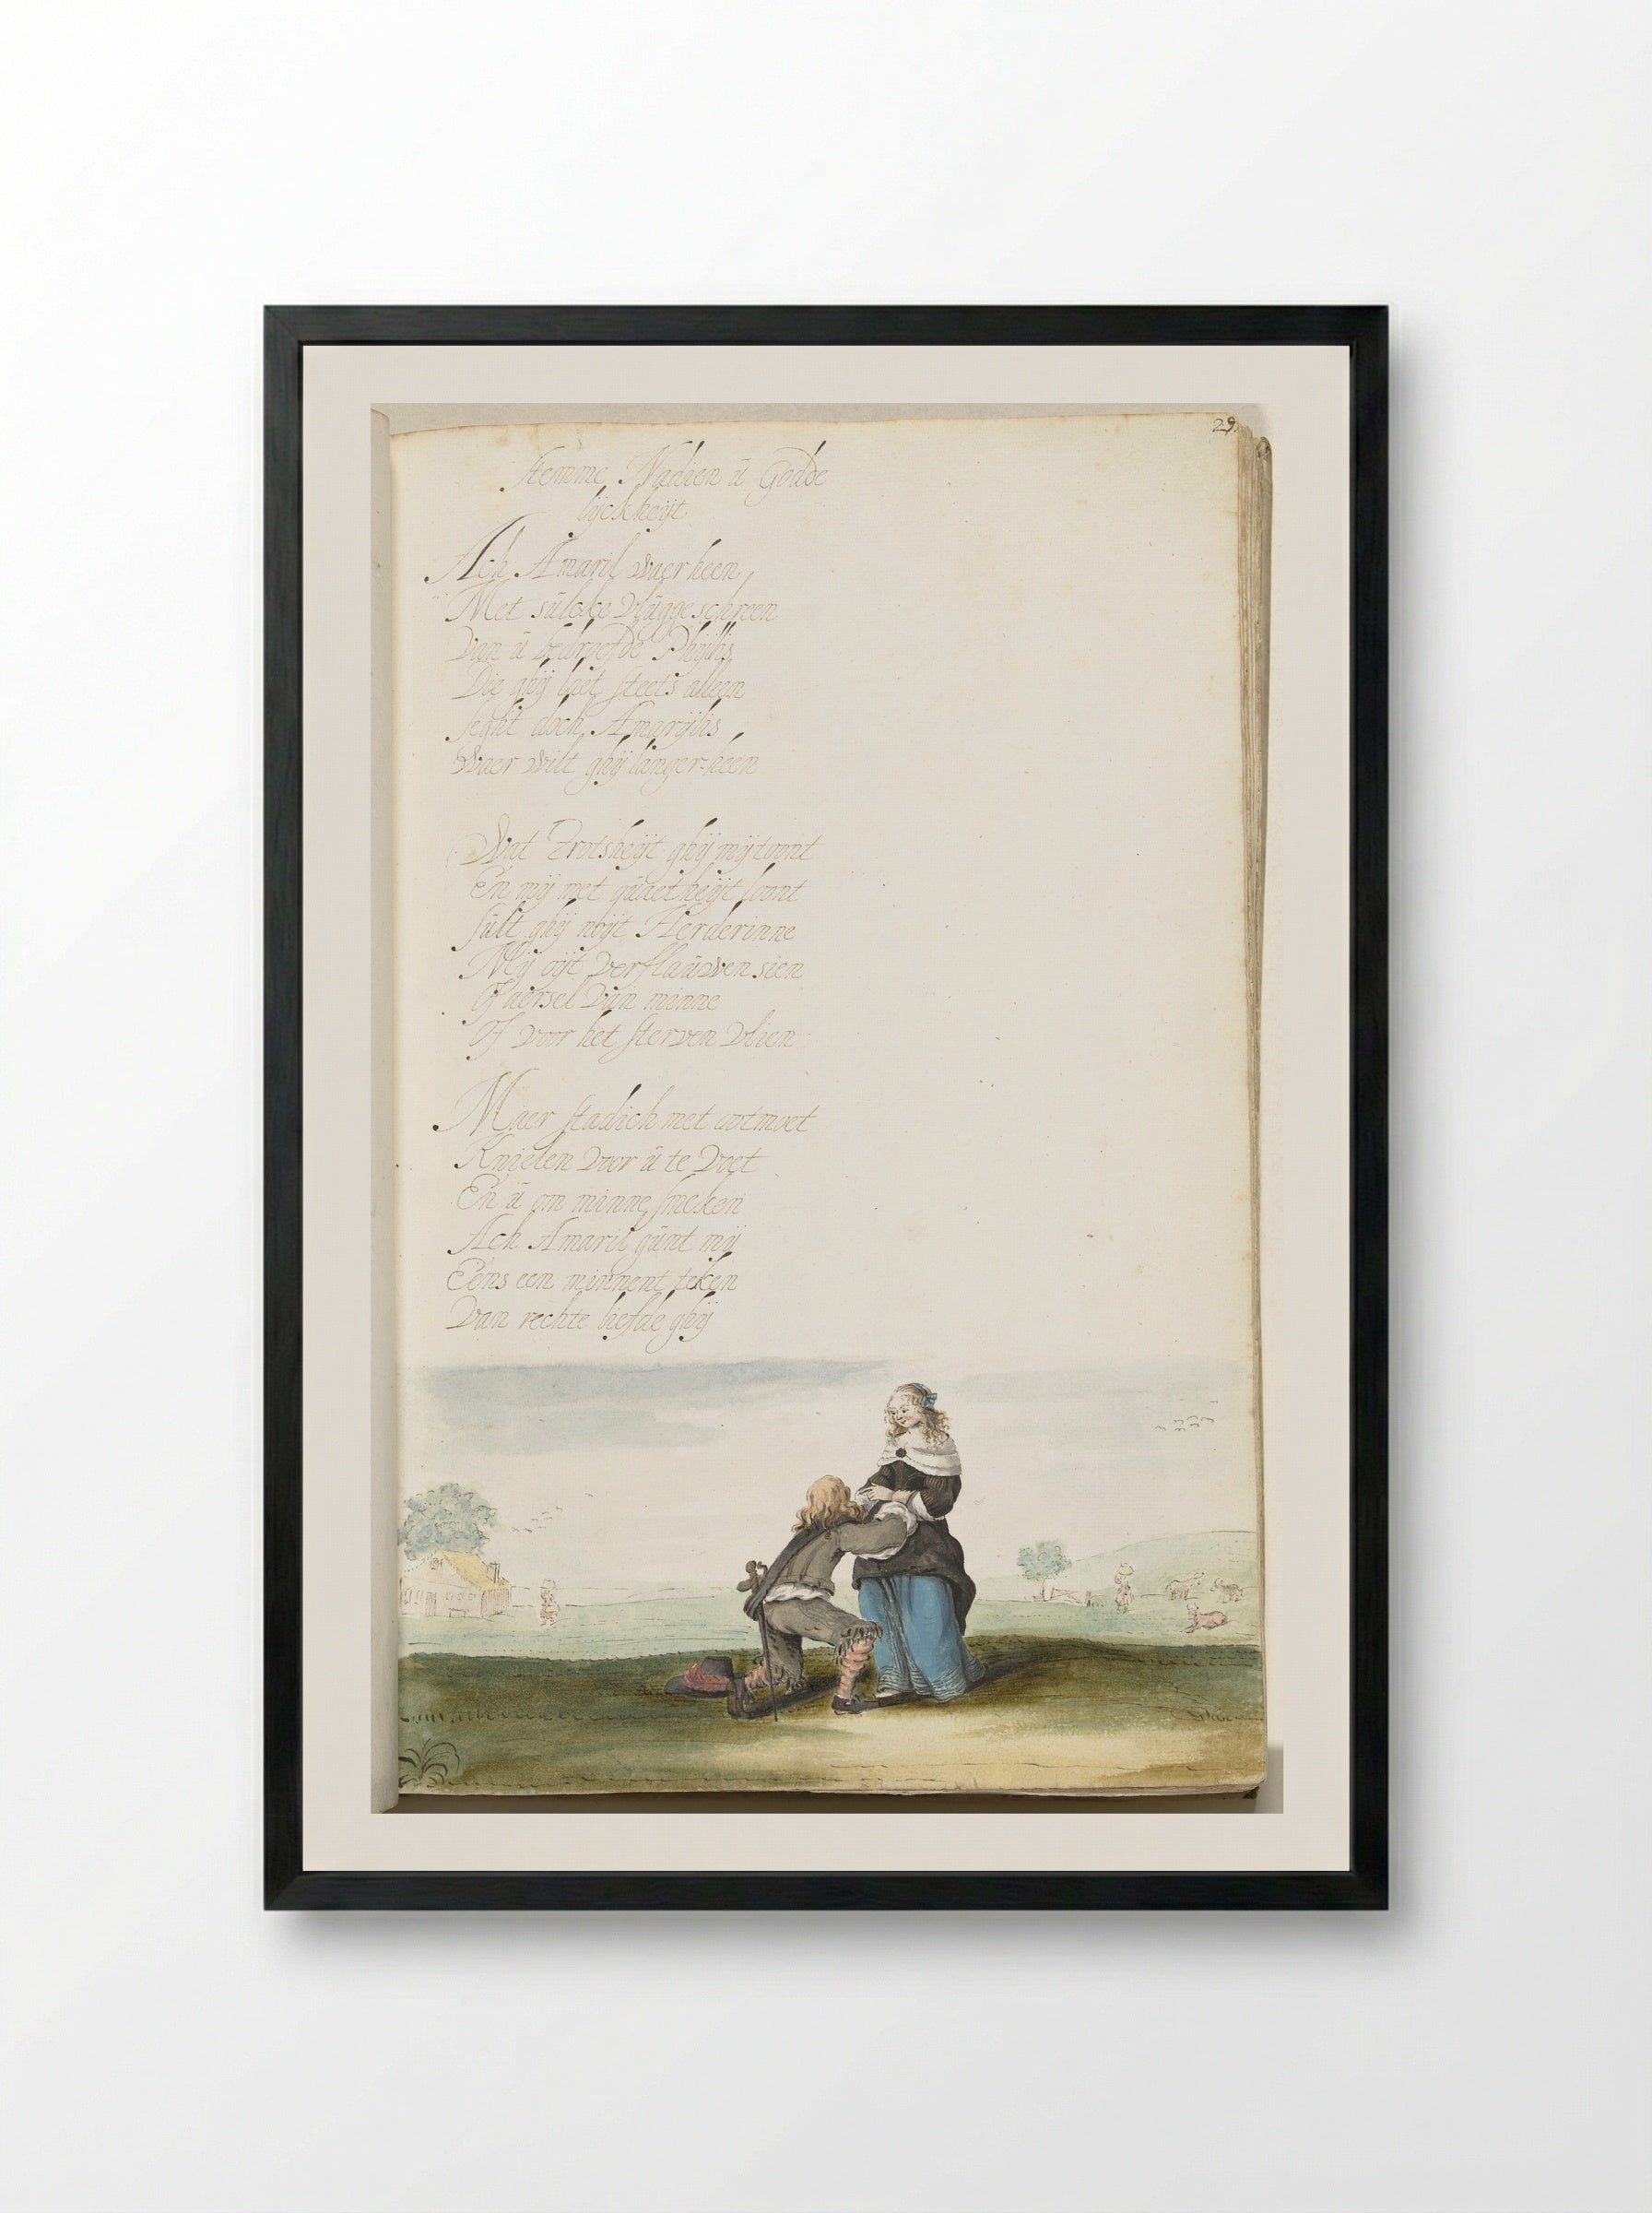 29.
Stemme, Nadien ū Godde
lijckheijt.
Ach Amaril waer heen,
Met sulcke vlugge schreen
Van ū bedroefde Phijllis
Die ghij laet steets alleen
Seght doch, Amarijlis
Waer wilt ghij langer heen
Wat Trotsheijt ghij mij toont
En mij met quaetheijt loont
Sult ghij noijt Herderinne
Mij oijt verflaūwen sien
Of aersel van minne
Of voor het sterven vlien
Maer stadich met ootmoet
Knielen voor ū te voet
En ū om minne smeken
Ach Amaril gūnt mij
Eens een minnent teken
Van rechte liefde ghij